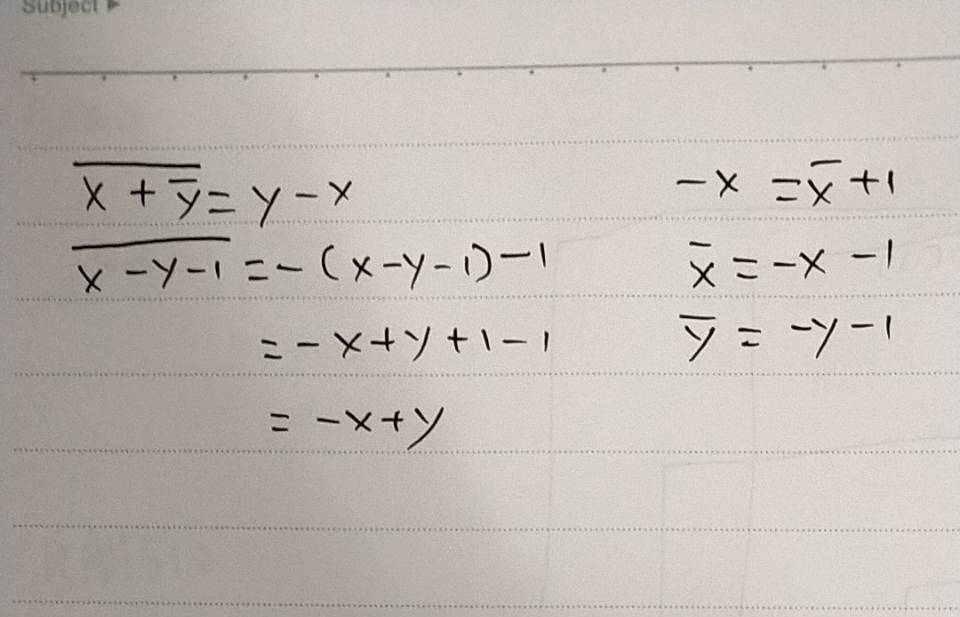 Subject ▶
$\overline{x + \overline{y}} = y - x$
$\overline{x - y - 1} = -(x - y - 1) - 1$
$= -x + y + 1 - 1$
$= -x + y$
$-x = \overline{x} + 1$
$\overline{x} = -x - 1$
$\overline{y} = -y - 1$